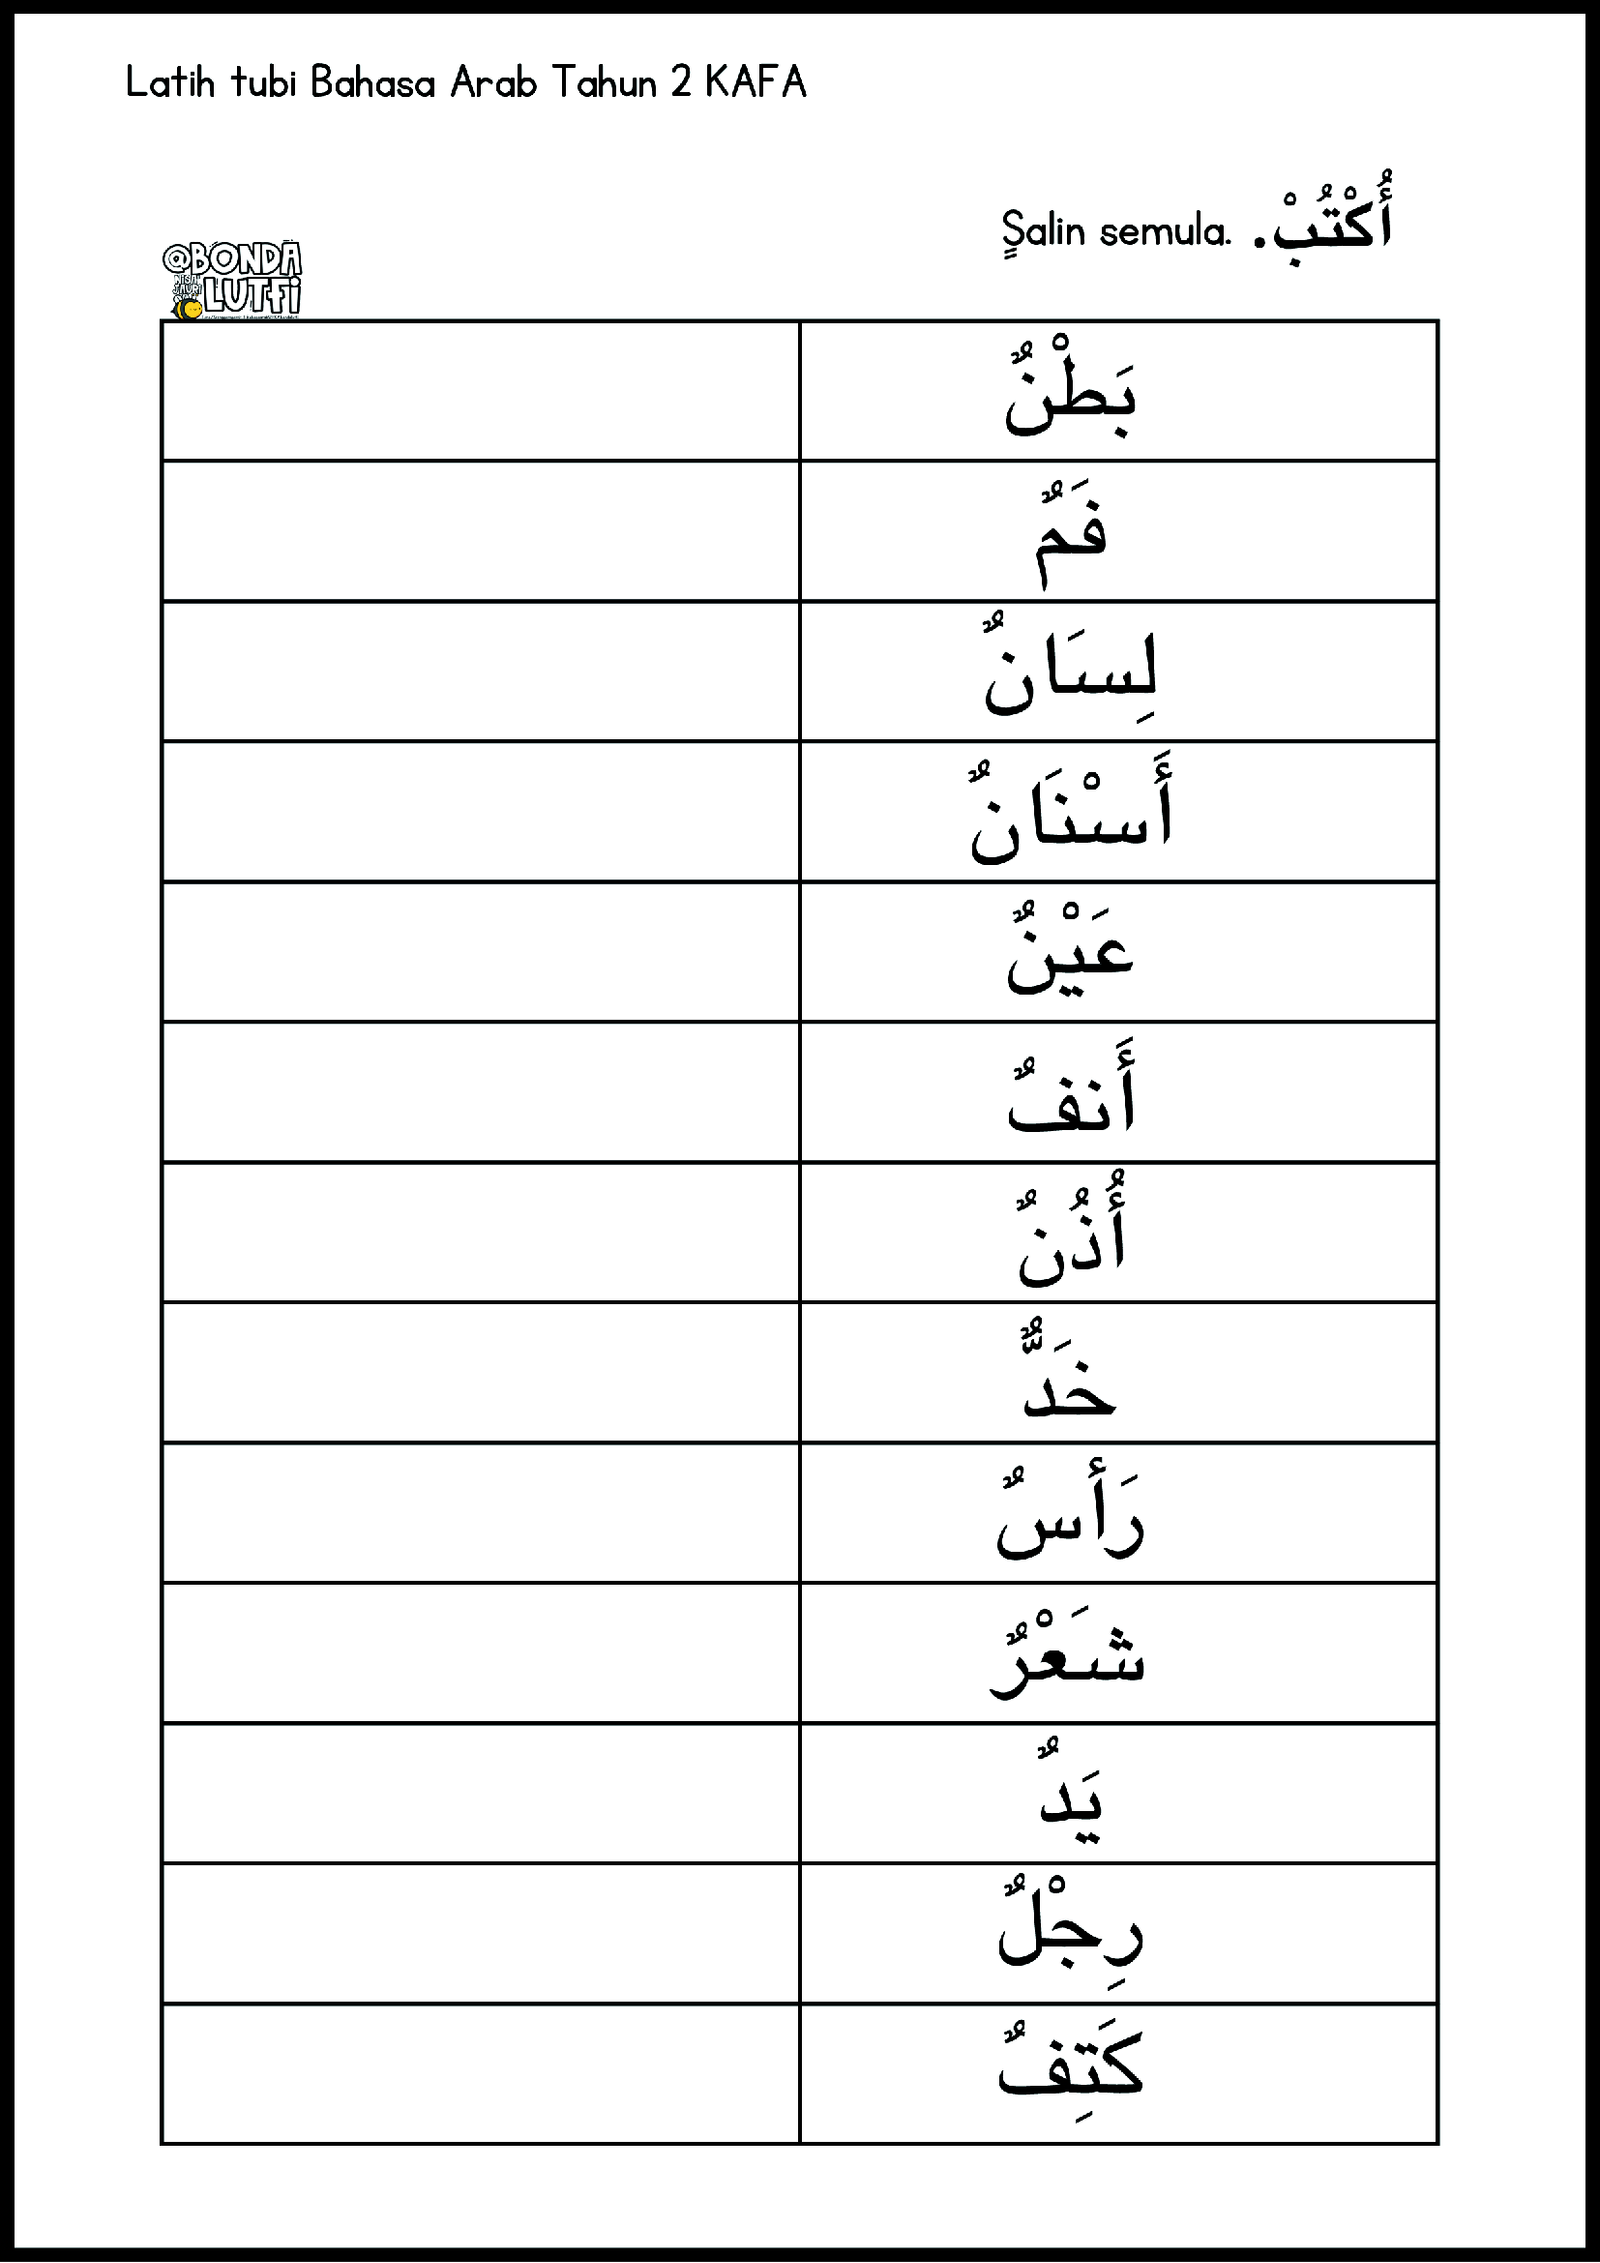 Latih tubi Bahasa Arab Tahun 2 KAFA
أُكْتُبْ. Salin semula.
@BONDA
LUTFI
بَطْنٌ
فَمٌ
لِسَانٌ
أَسْنَانٌ
عَيْنٌ
أَنفٌ
أُذُنٌ
خَدٌّ
رَأسٌ
شَعْرٌ
يَدٌ
رِجْلٌ
كَتِفٌ